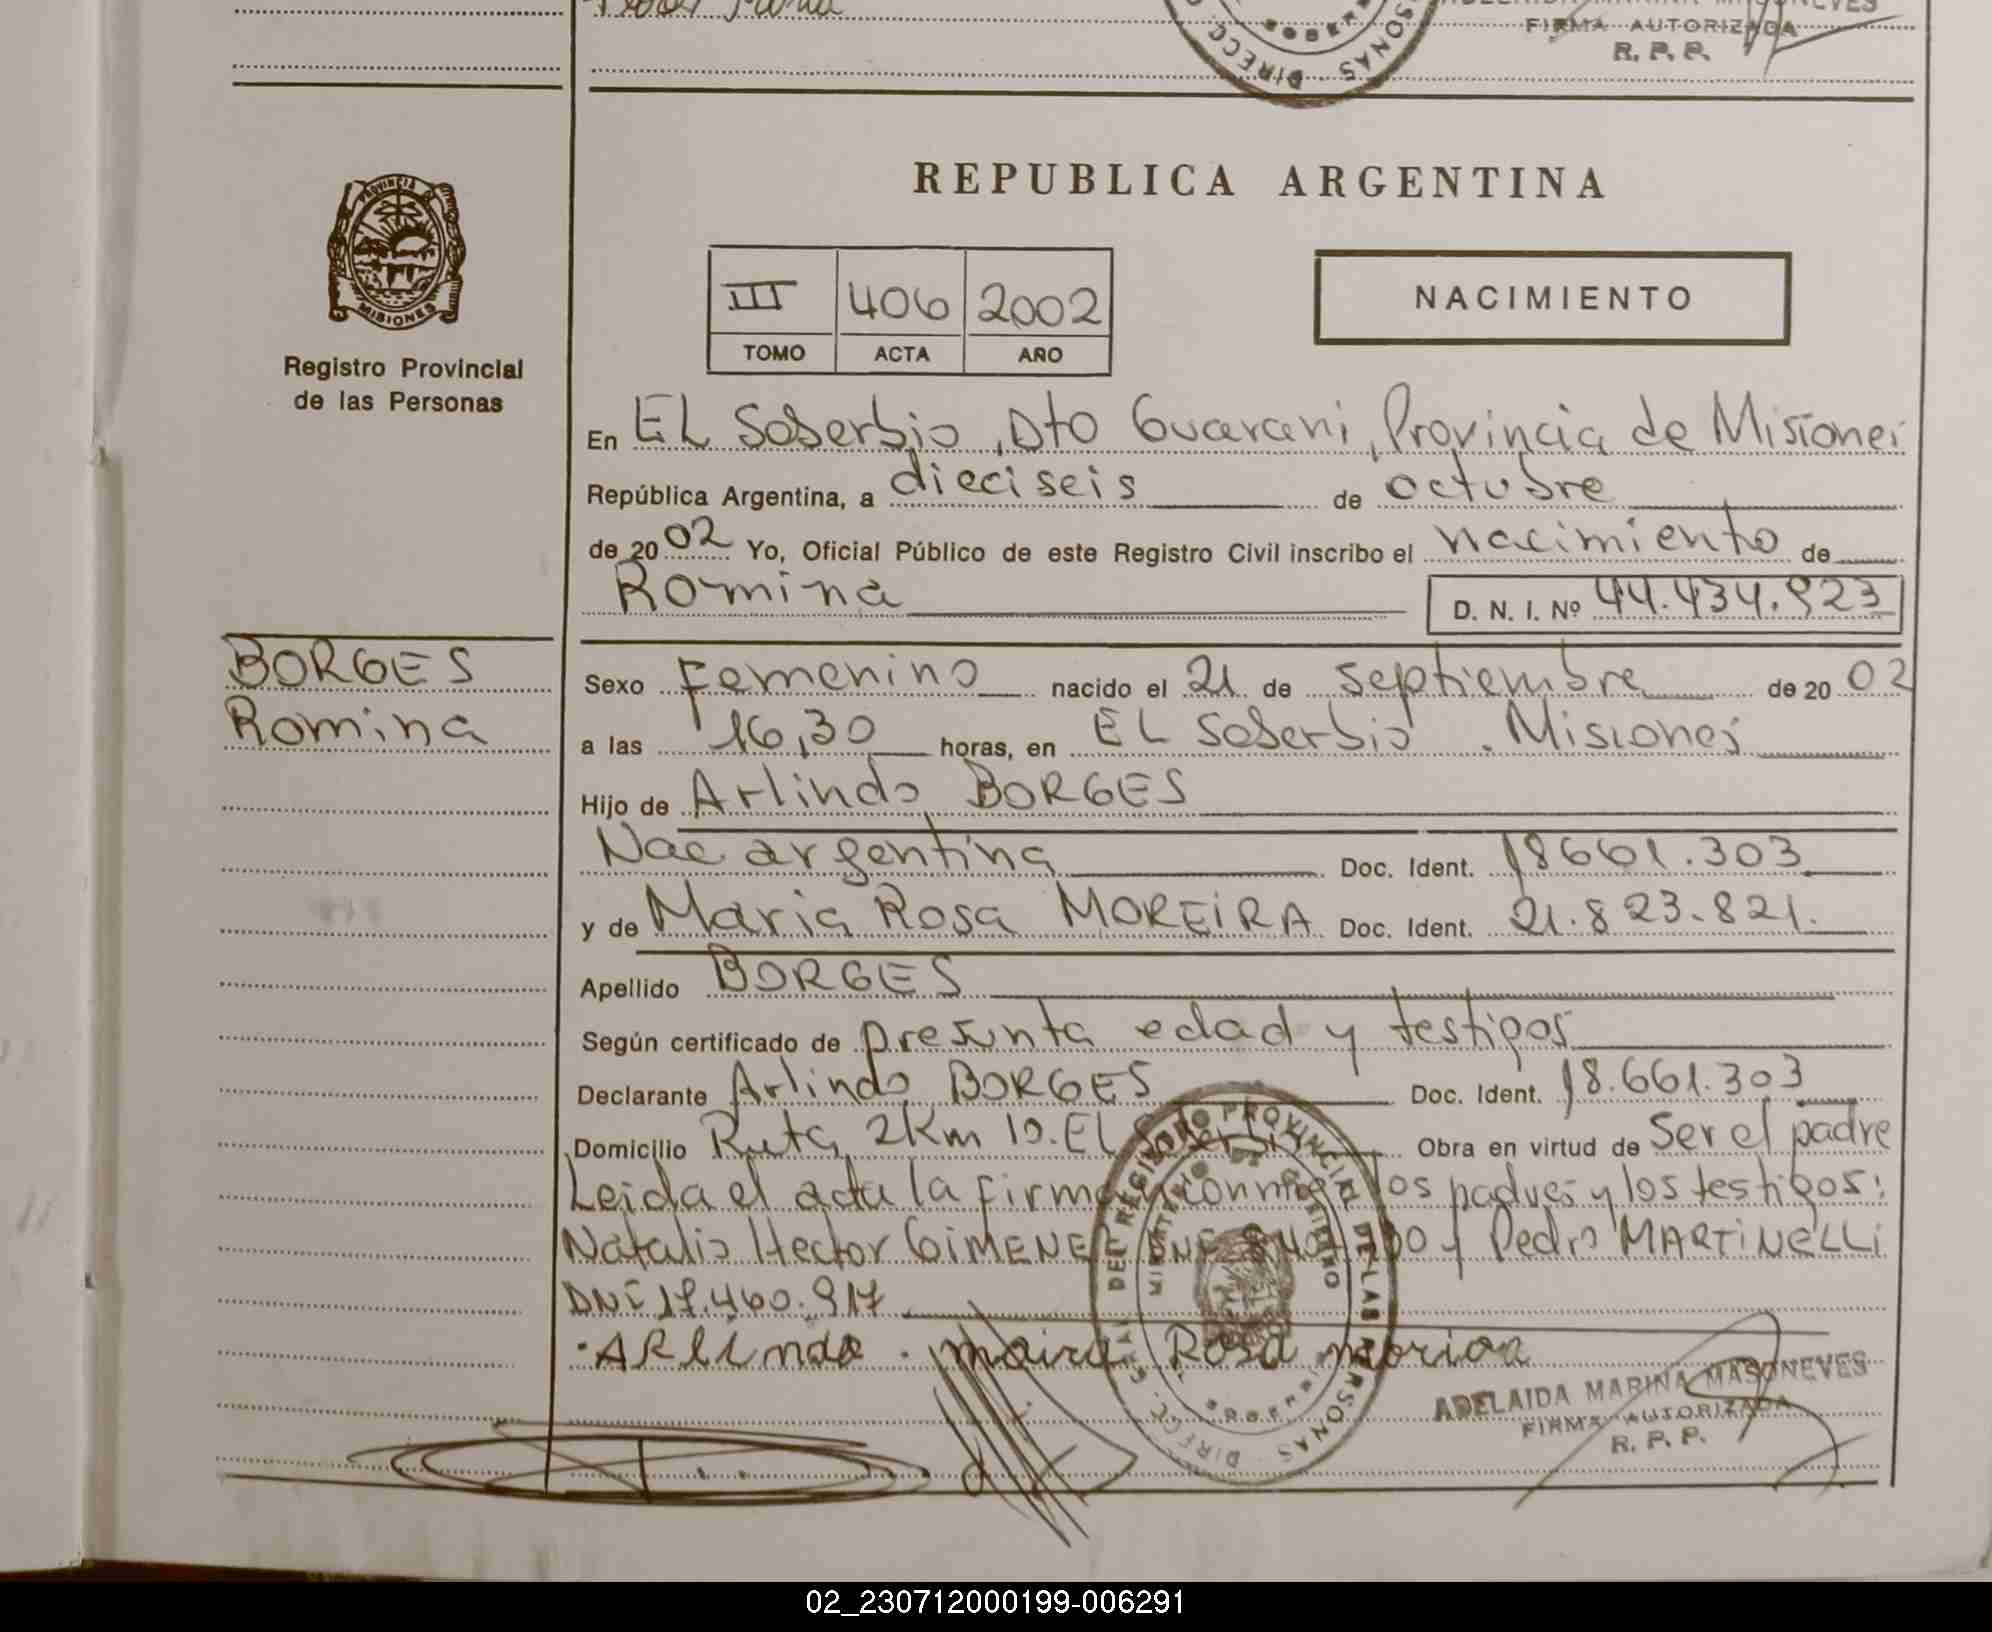 FIRMA AUTORIZADA
R. P. P.
PROVINCIA
MISIONES
Registro Provincial
de las Personas
REPUBLICA ARGENTINA
III 406 2002
TOMO ACTA AÑO
NACIMIENTO
En EL Soberbio, Dto Guarani, Provincia de Misiones
República Argentina, a dieciseis de octubre
de 2002 Yo, Oficial Público de este Registro Civil inscribo el nacimiento de
Romina D. N. I. Nº 44.434.923
BORGES
Romina
Sexo Femenino nacido el 21 de Septiembre de 2002
a las 16,30 horas, en EL Soberbio. Misiones
Hijo de Arlindo BORGES
Nac argentina Doc. Ident. 18661.303
y de Maria Rosa MOREIRA Doc. Ident. 21.823.821.
Apellido BORGES
Según certificado de presunta edad y testigos
Declarante Arlindo BORGES Doc. Ident. 18.661.303
Domicilio Ruta 2 Km 10. El Soberbio Obra en virtud de Ser el padre
Leida el acta la firman conmigo los padres y los testigos:
Natalio Hector GIMENEZ DNI y Pedro MARTINELLI
DNI 17.460.917
ARLindo Maira Rosa
DIRECC. GRAL DEL REGISTRO PROVINCIAL DE LAS PERSONAS
MINISTERIO DE GOBIERNO
ADELAIDA MARINA MASONEVES
FIRMA AUTORIZADA
R. P. P.
02_230712000199-006291